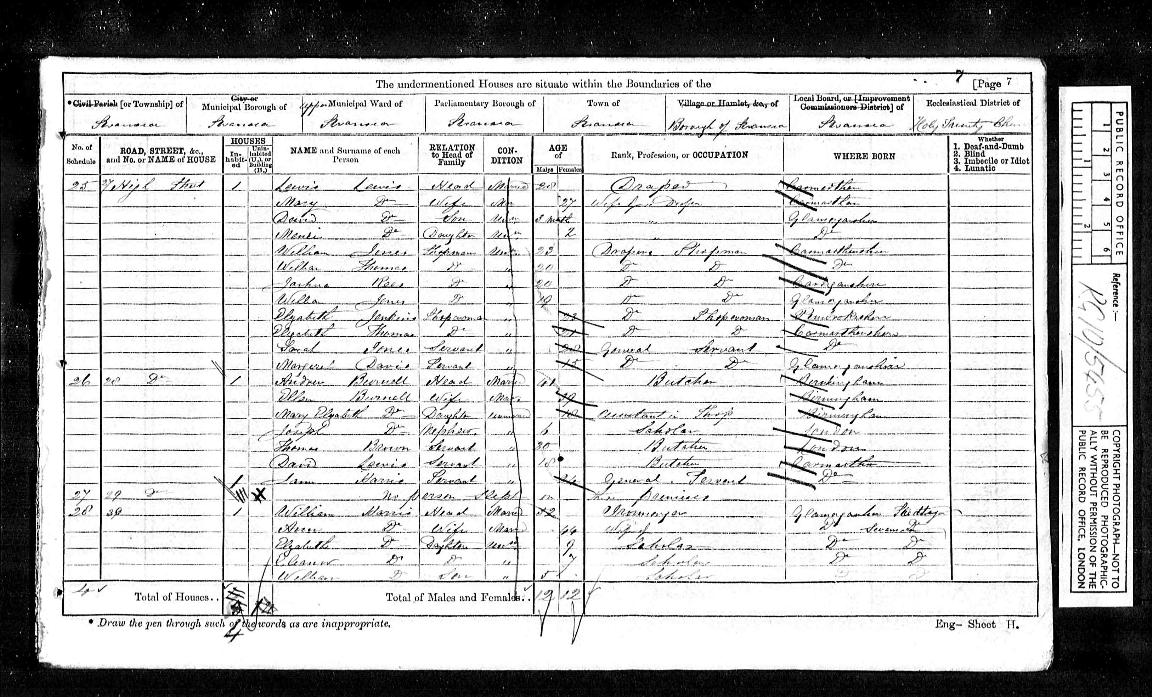 7 [Page 7
The undermentioned Houses are situate within the Boundaries of the
*Civil Parish [or Township] of City or Municipal Borough of Municipal Ward of Parliamentary Borough of Town of Village or Hamlet, &c., of Local Board, or [Improvement Commissioners District] of Ecclesiastical District of
Swansea Swansea Upper Swansea Swansea Swansea Borough of Swansea Swansea Holy Trinity
No. of Schedule ROAD, STREET, &c., and No. or NAME of HOUSE HOUSES Inhabited Uninhabited (U.), or Building (B.) NAME and Surname of each Person RELATION to Head of Family CONDITION AGE of Males Females Rank, Profession, or OCCUPATION WHERE BORN Whether 1. Deaf-and-Dumb 2. Blind 3. Imbecile or Idiot 4. Lunatic
25 27 High Street 1 Lewis Lewis Head Married 28 Draper Carmarthen
Mary Do Wife Mar 27 Wife of Draper Carmarthen
David Do Son Unm 3 mnth " Glamorganshire
Do Daughter Unm 2 " Do
William Jones Shopman Unm 23 Drapers Shopman Carmarthenshire
William Thomas Do " 20 Do Do Do
Joshua Rees Do " 20 Do Do Cardiganshire
William Jones Do " 19 Do Do Glamorganshire
Elizabeth Jenkins Shopwoman " Do Shopwoman Pembrokeshire
Elizabeth Thomas Do " Do Do Carmarthenshire
Sarah Jones Servant " General Servant Do
Margaret David Servant " 15 Do Do Glamorganshire
26 28 Do 1 Andrew Burnell Head Married Butcher Birmingham
Ellen Burnell Wife Mar Birmingham
Mary Elizabeth Do Daughter Unmarried Assistant in Shop Birmingham
Joseph Do Nephew " 6 Scholar London
Thomas Brown Servant " 20 Butcher London
David Lewis Servant " 18 Butcher Carmarthen
Jane Harris Servant " General Servant Do
27 29 Do No person Slept on the Premises
28 39 1 William Morris Head Married 52 Ironmonger Glamorganshire
Ann Do Wife Married 44 Wife of Do Swansea
Elizabeth Do Daughter Unm 9 Scholar Do Do
Eleanor Do Do " 7 Scholar Do Do
William Do Son " 5 Scholar
4 Total of Houses.. 4 Total of Males and Females.. 12 12
* Draw the pen through such of the words as are inappropriate. Eng- Sheet H.
PUBLIC RECORD OFFICE
1 2 3 4 5 6
1 2
Reference :-
RG 10/5455
COPYRIGHT PHOTOGRAPH—NOT TO BE REPRODUCED PHOTOGRAPHICALLY WITHOUT PERMISSION OF THE PUBLIC RECORD OFFICE, LONDON